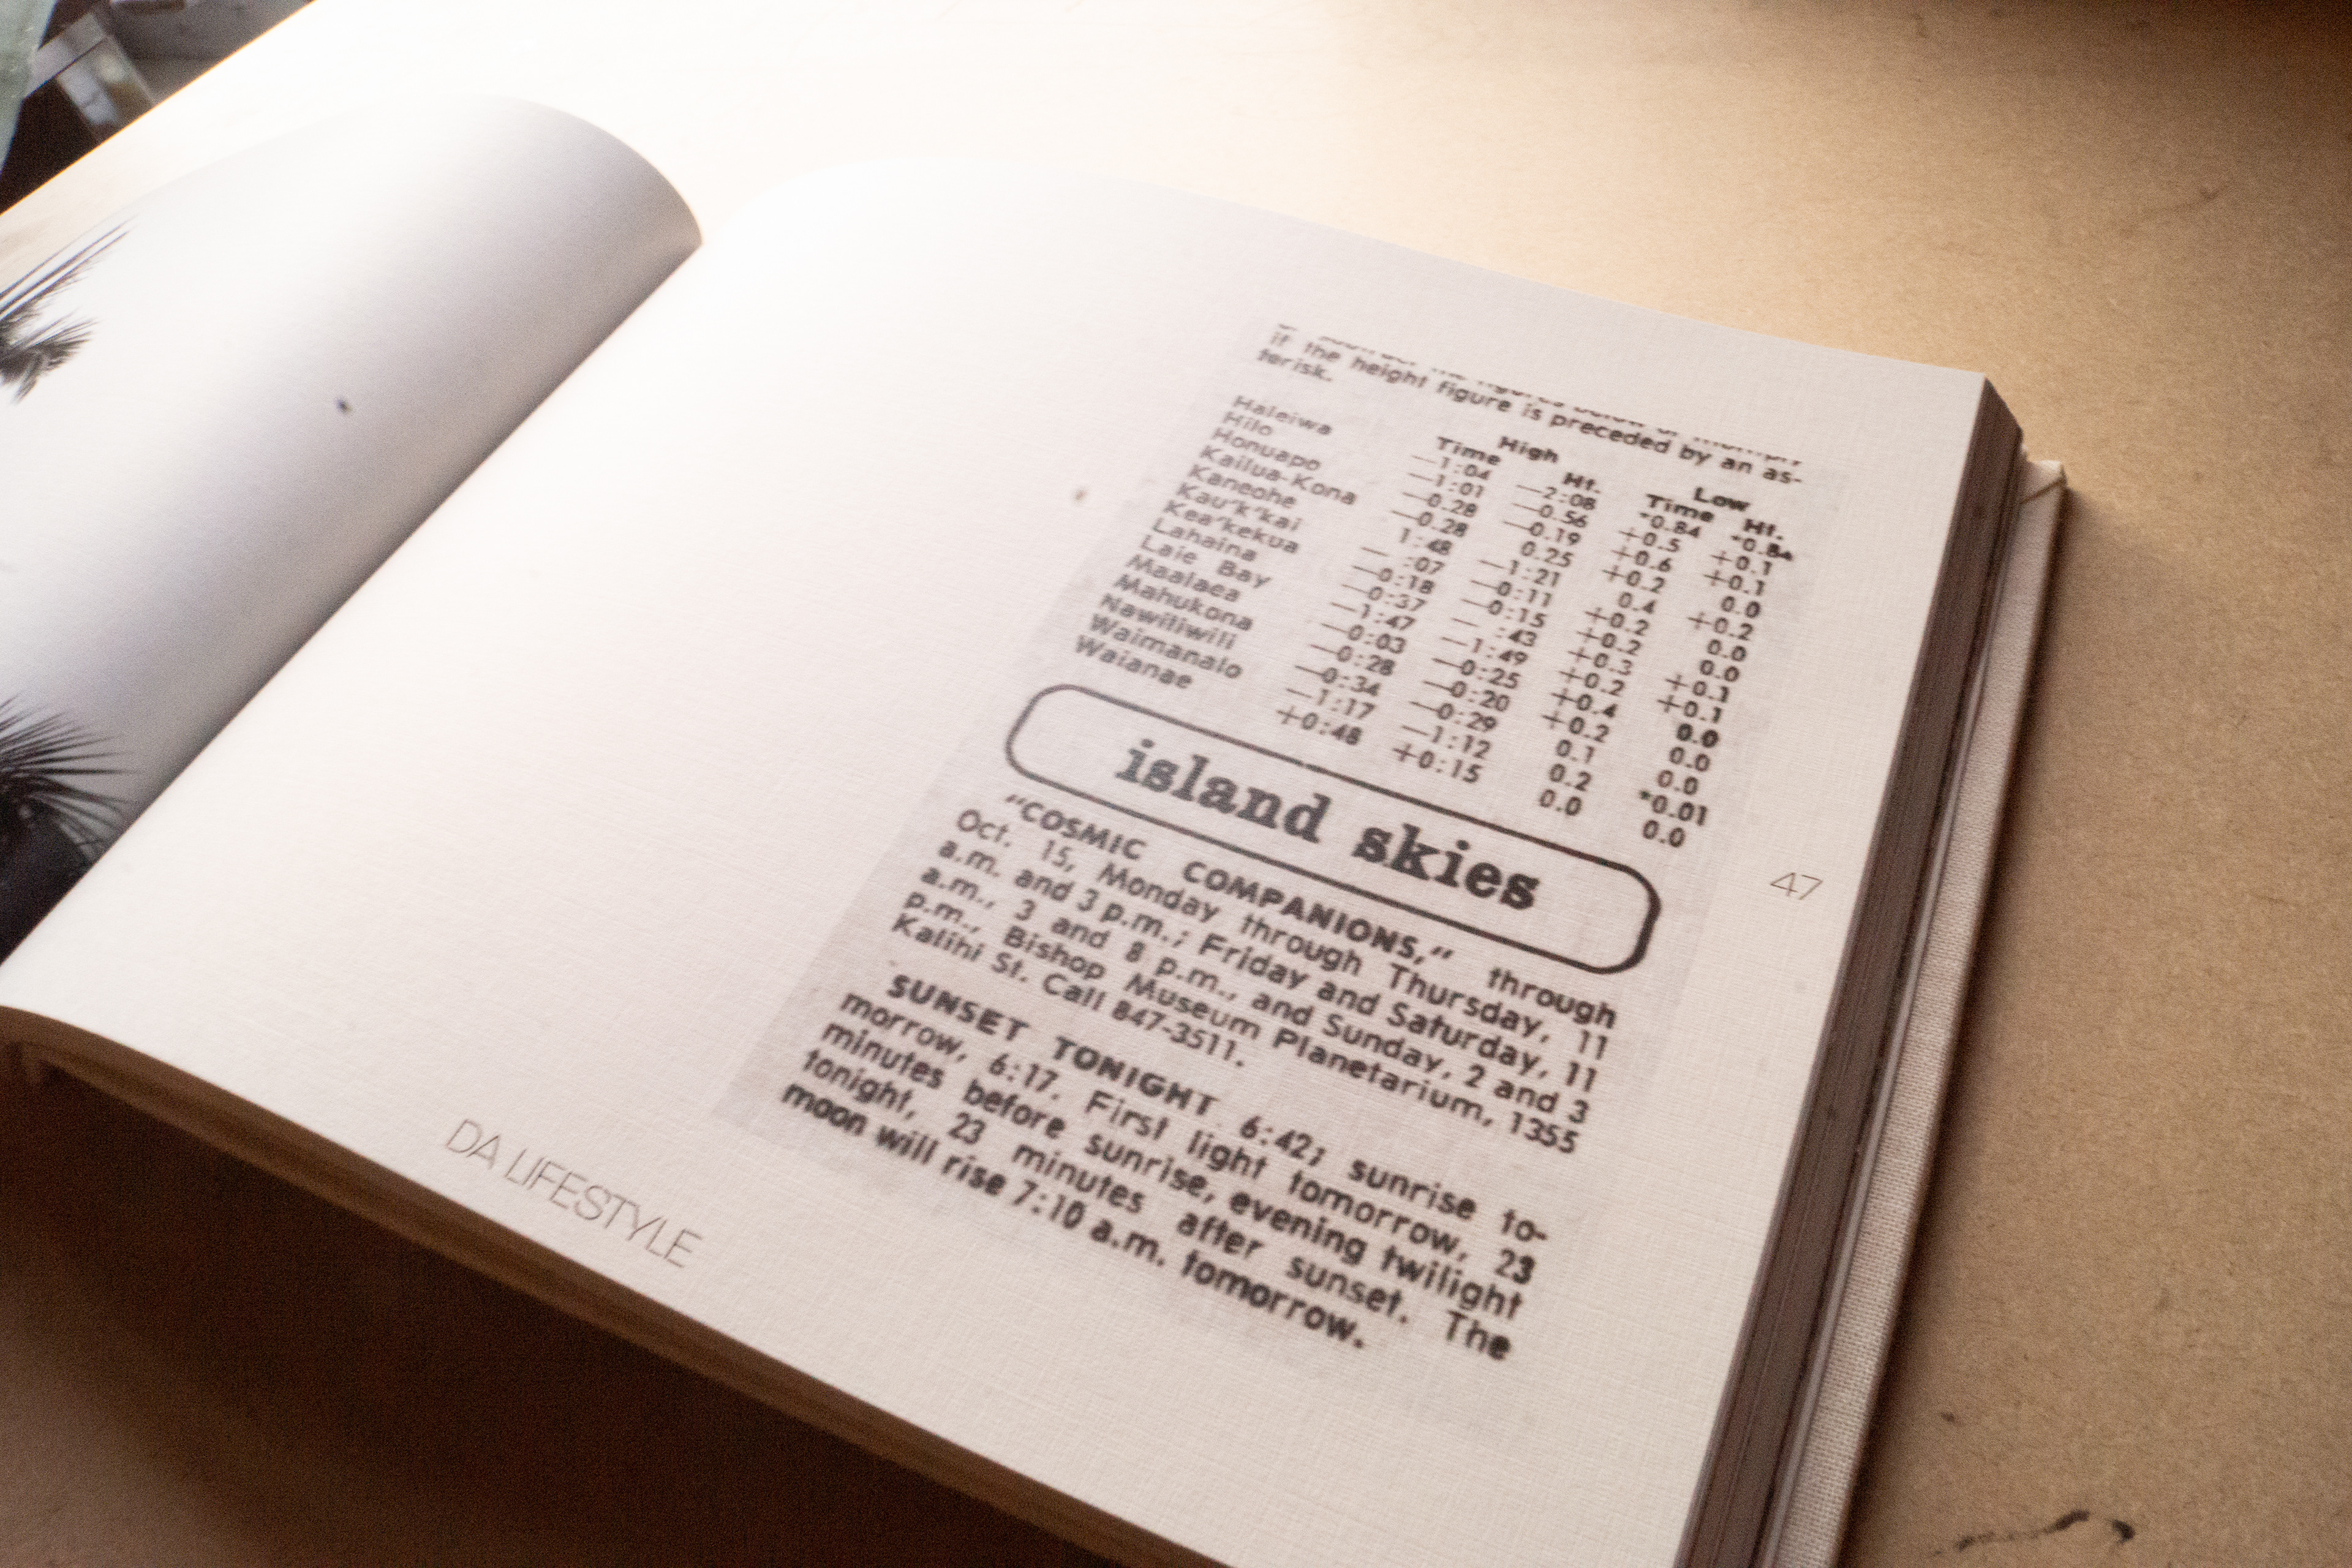 if the height figure is preceded by an as-
terisk.
High Low
Time Ht. Time Ht.
Haleiwa —1:04 —2:08 *0.84 *0.84
Hilo —1:01 —0.56 +0.5 +0.1
Honuapo —0.28 —0.19 +0.6 +0.1
Kailua-Kona —0.28 0.25 +0.2 0.0
Kaneohe 1:48 —1:21 0.4 +0.2
Kau'k'kai — :07 —0:11 +0.2 0.0
Kea'kekua —0:18 —0:15 +0.2 0.0
Lahaina —0:37 — :43 +0.3 +0.1
Laie Bay —1:47 —1:49 +0.2 +0.1
Maalaea —0:03 —0:25 +0.4 0.0
Mahukona —0:28 —0:20 +0.2 0.0
Nawiliwili —0:34 —0:29 0.1 0.0
Waimanalo —1:17 —1:12 0.2 *0.01
Waianae +0:48 +0:15 0.0 0.0
island skies
"COSMIC COMPANIONS," through
Oct. 15, Monday through Thursday, 11
a.m. and 3 p.m.; Friday and Saturday, 11
a.m., 3 and 8 p.m., and Sunday, 2 and 3
p.m., Bishop Museum Planetarium, 1355
Kalihi St. Call 847-3511.
SUNSET TONIGHT 6:42; sunrise to-
morrow, 6:17. First light tomorrow, 23
minutes before sunrise, evening twilight
tonight, 23 minutes after sunset. The
moon will rise 7:10 a.m. tomorrow.
47
DA LIFESTYLE